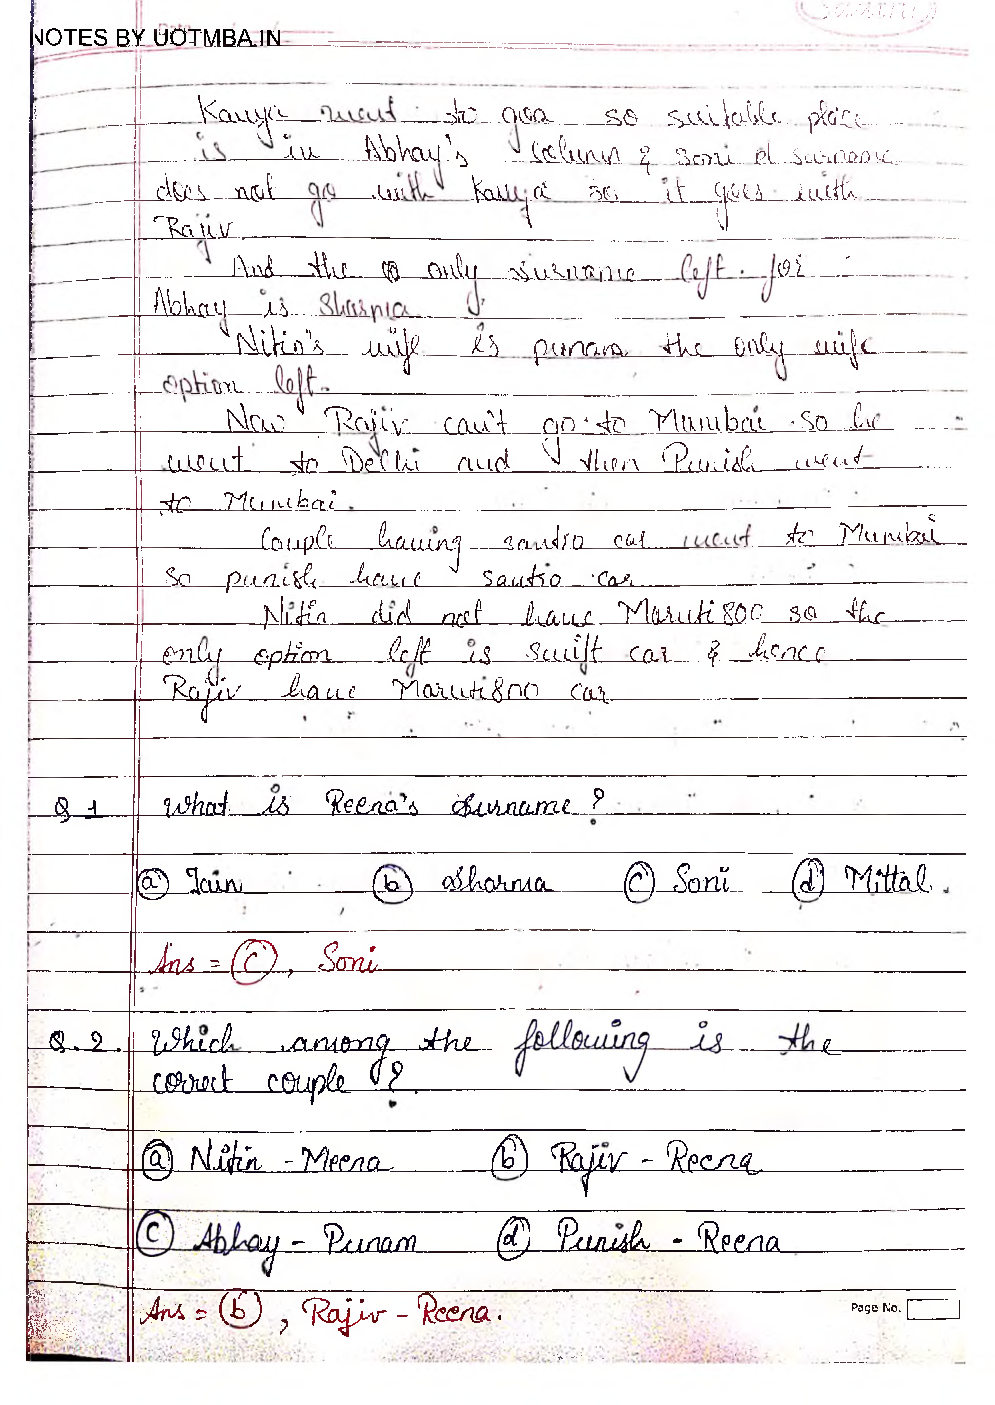 NOTES BY UOTMBA.IN
Kavya went to goa so suitable place
is in Abhay's column & Soni surname
does not go with Kavya so it goes with
Rajiv
And the only surname left for
Abhay is Sharma
Nitin's wife is punam the only wife
option left.
Now Rajiv can't go to Mumbai so he
went to Delhi and then Punish went
to Mumbai.
Couple having santro car went to Mumbai
so punish have santro car
Nitin did not have Maruti 800 so the
only option left is swift car & hence
Rajiv have Maruti 800 car
Q 1 What is Reena's surname?
(a) Jain (b) Sharma (c) Soni (d) Mittal.
Ans = (c), Soni
Q.2. Which among the following is the
correct couple ?
(a) Nitin - Meena (b) Rajiv - Reena
(c) Abhay - Punam (d) Punish - Reena
Ans = (b), Rajiv - Reena.
Page No.